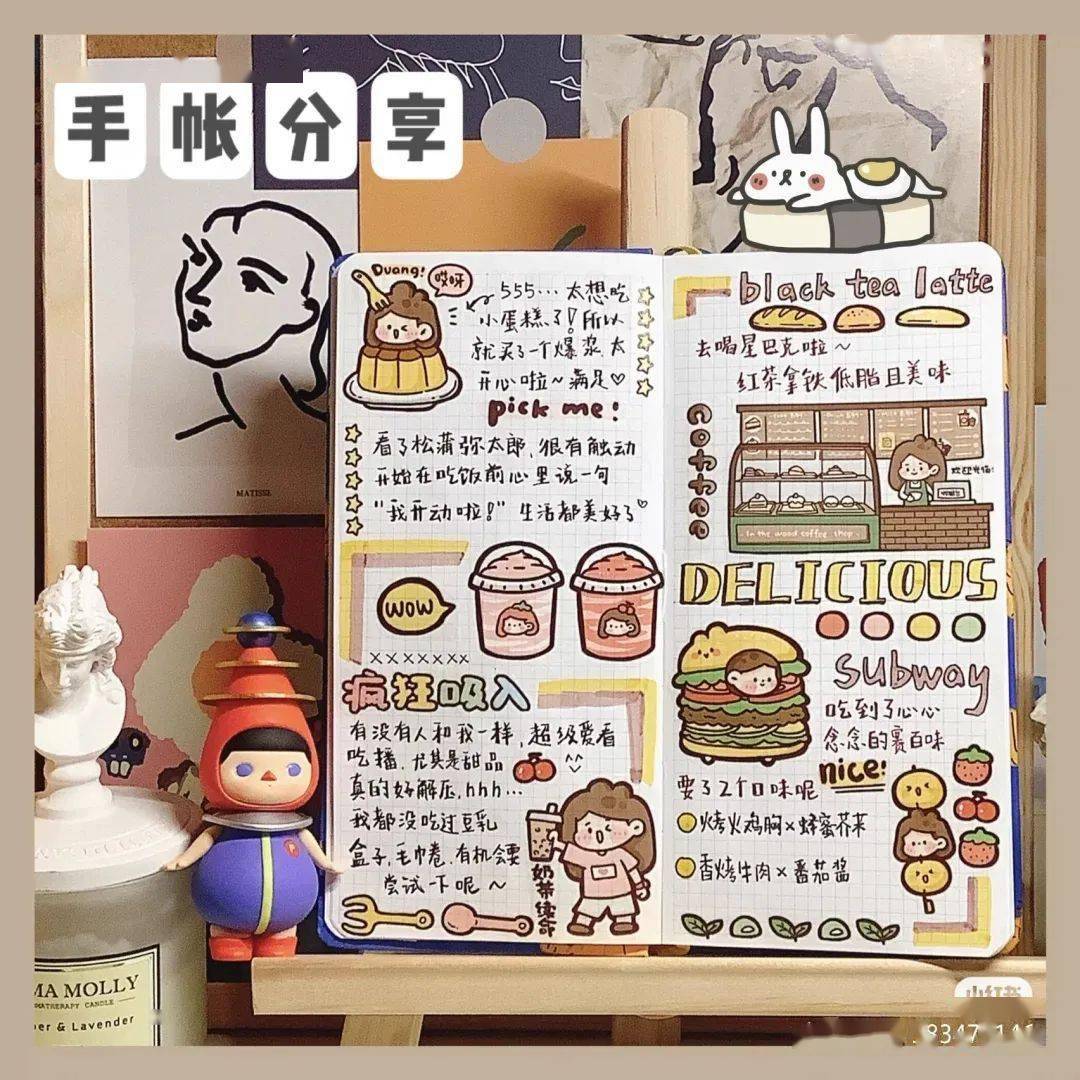 手帐分享
MATISSE
Duang!
哎呀
555… 太想吃
小蛋糕了! 所以
就买了一个爆浆,太
开心啦~满足♡
pick me!
看了松蒲弥太郎,很有触动
开始在吃饭前心里说一句
“我开动啦!”生活都美好了♡
WOW
×××××××
疯狂吸入
有没有人和我一样,超级爱看
吃播,尤其是甜品
真的好解压,hhh…
^^
我都没吃过豆乳
盒子,毛巾卷.有机会要
尝试一下呢~
奶茶续命
black tea latte
去喝星巴克啦~
红茶拿铁低脂且美味
coffee
欢迎光临!
In the wood coffee shop
DELICIOUS
subway
吃到了心心
念念的赛百味
nice!
要了2个口味呢
烤火鸡胸×蜂蜜芥末
香烤牛肉×番茄酱
MA MOLLY
AROMATHERAPY CANDLE
er & Lavender
小红书
8347